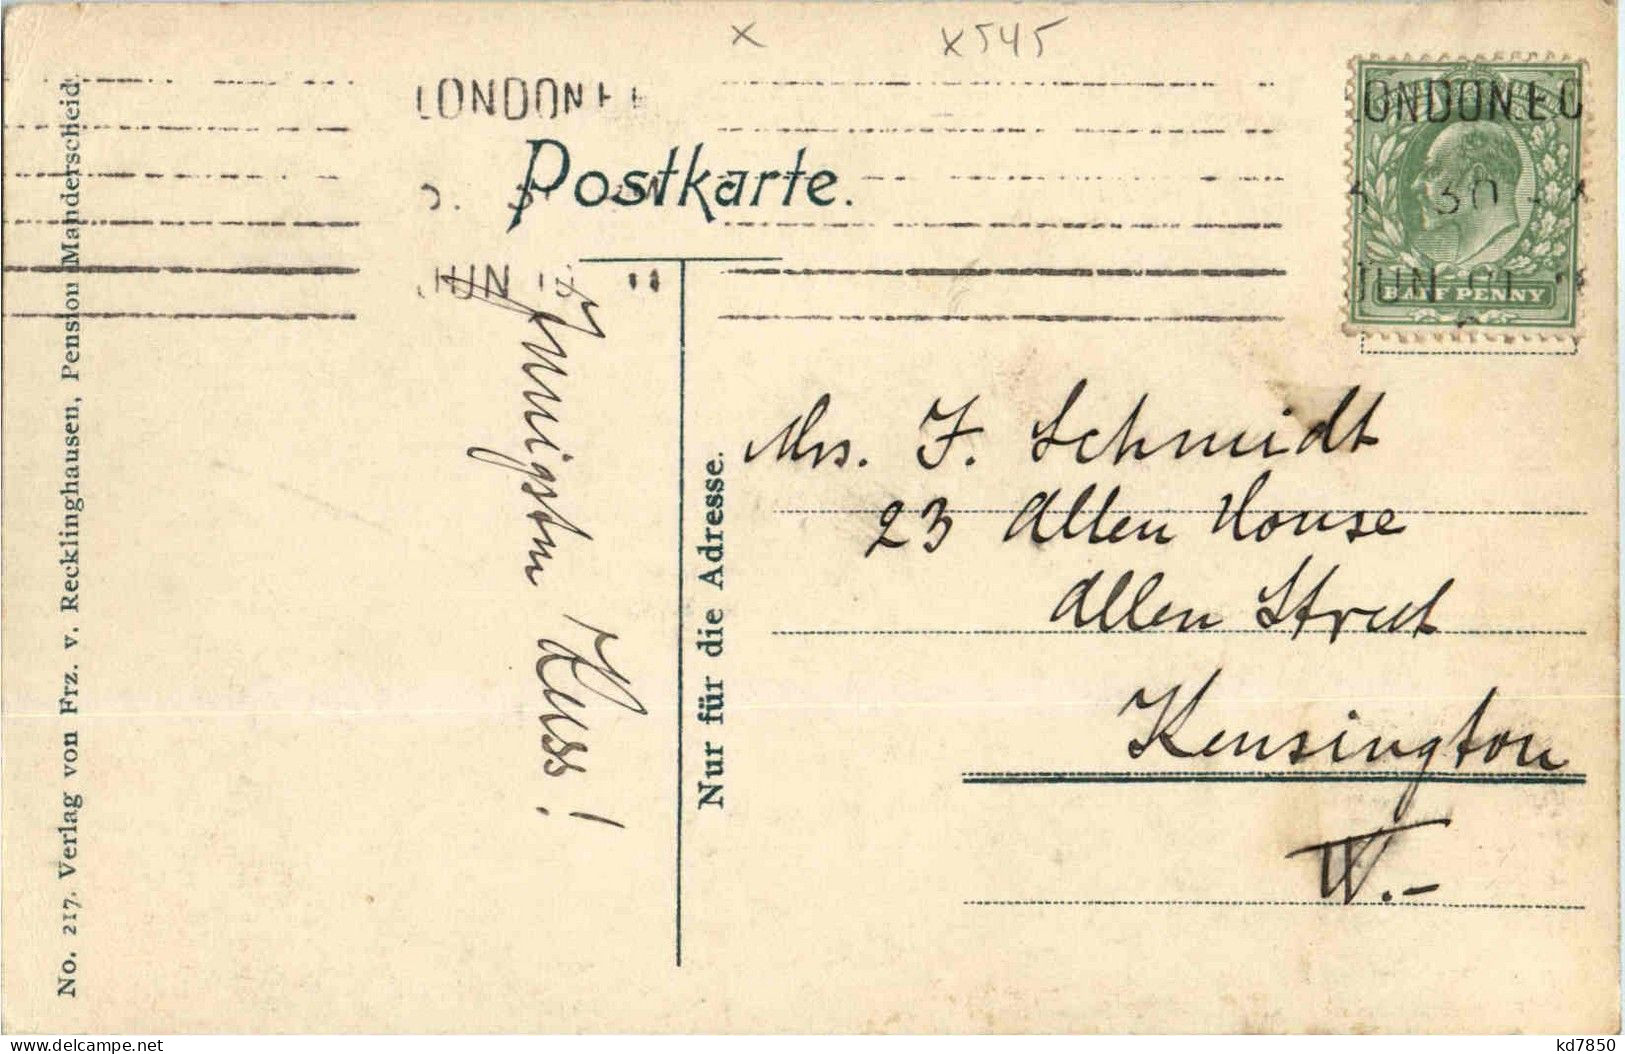 x
x 545
LONDON E
Postkarte.
ONDON.E.C
30
JUN
JUN 01
HALF PENNY
No. 217. Verlag von Frz. v. Recklinghausen, Pension Manderscheid.
Innigsten Kuss!
Nur für die Adresse.
Mrs. F. Schmidt
23 Allen House
Allen Street
Kensington
W.-
kd7850